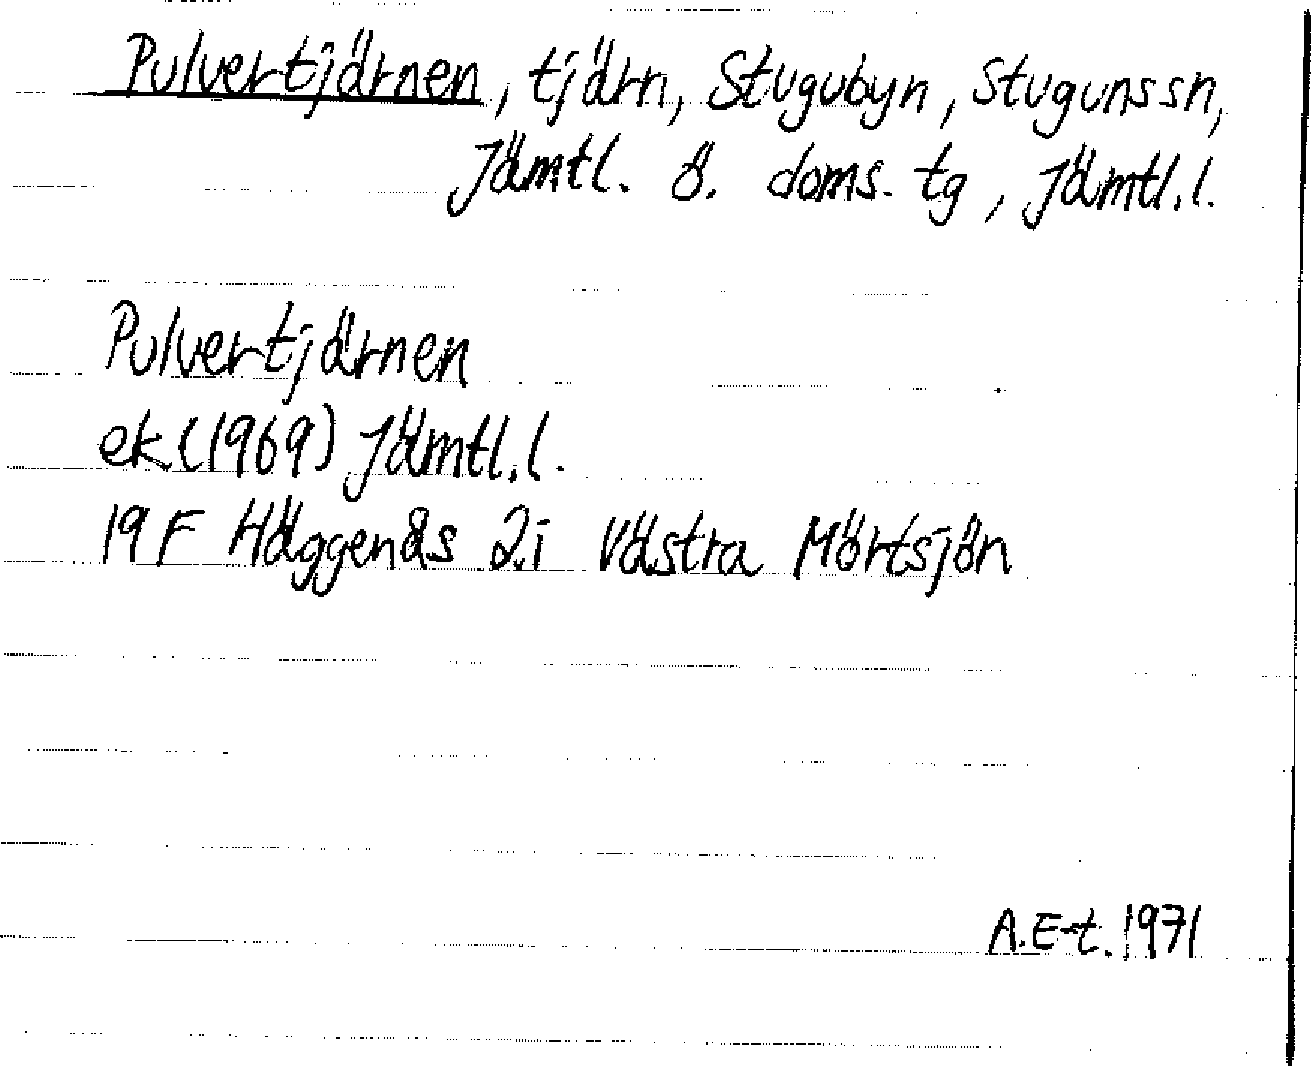 Pulvertjärnen, tjärn, Stugubyn, Stugunssn,
Jämtl. ö. doms. tg, Jämtl.l.
Pulvertjärnen
ek (1969) Jämtl.l.
19 F Häggenås 2.i Västra Mörtsjön
A.E-t. 1971